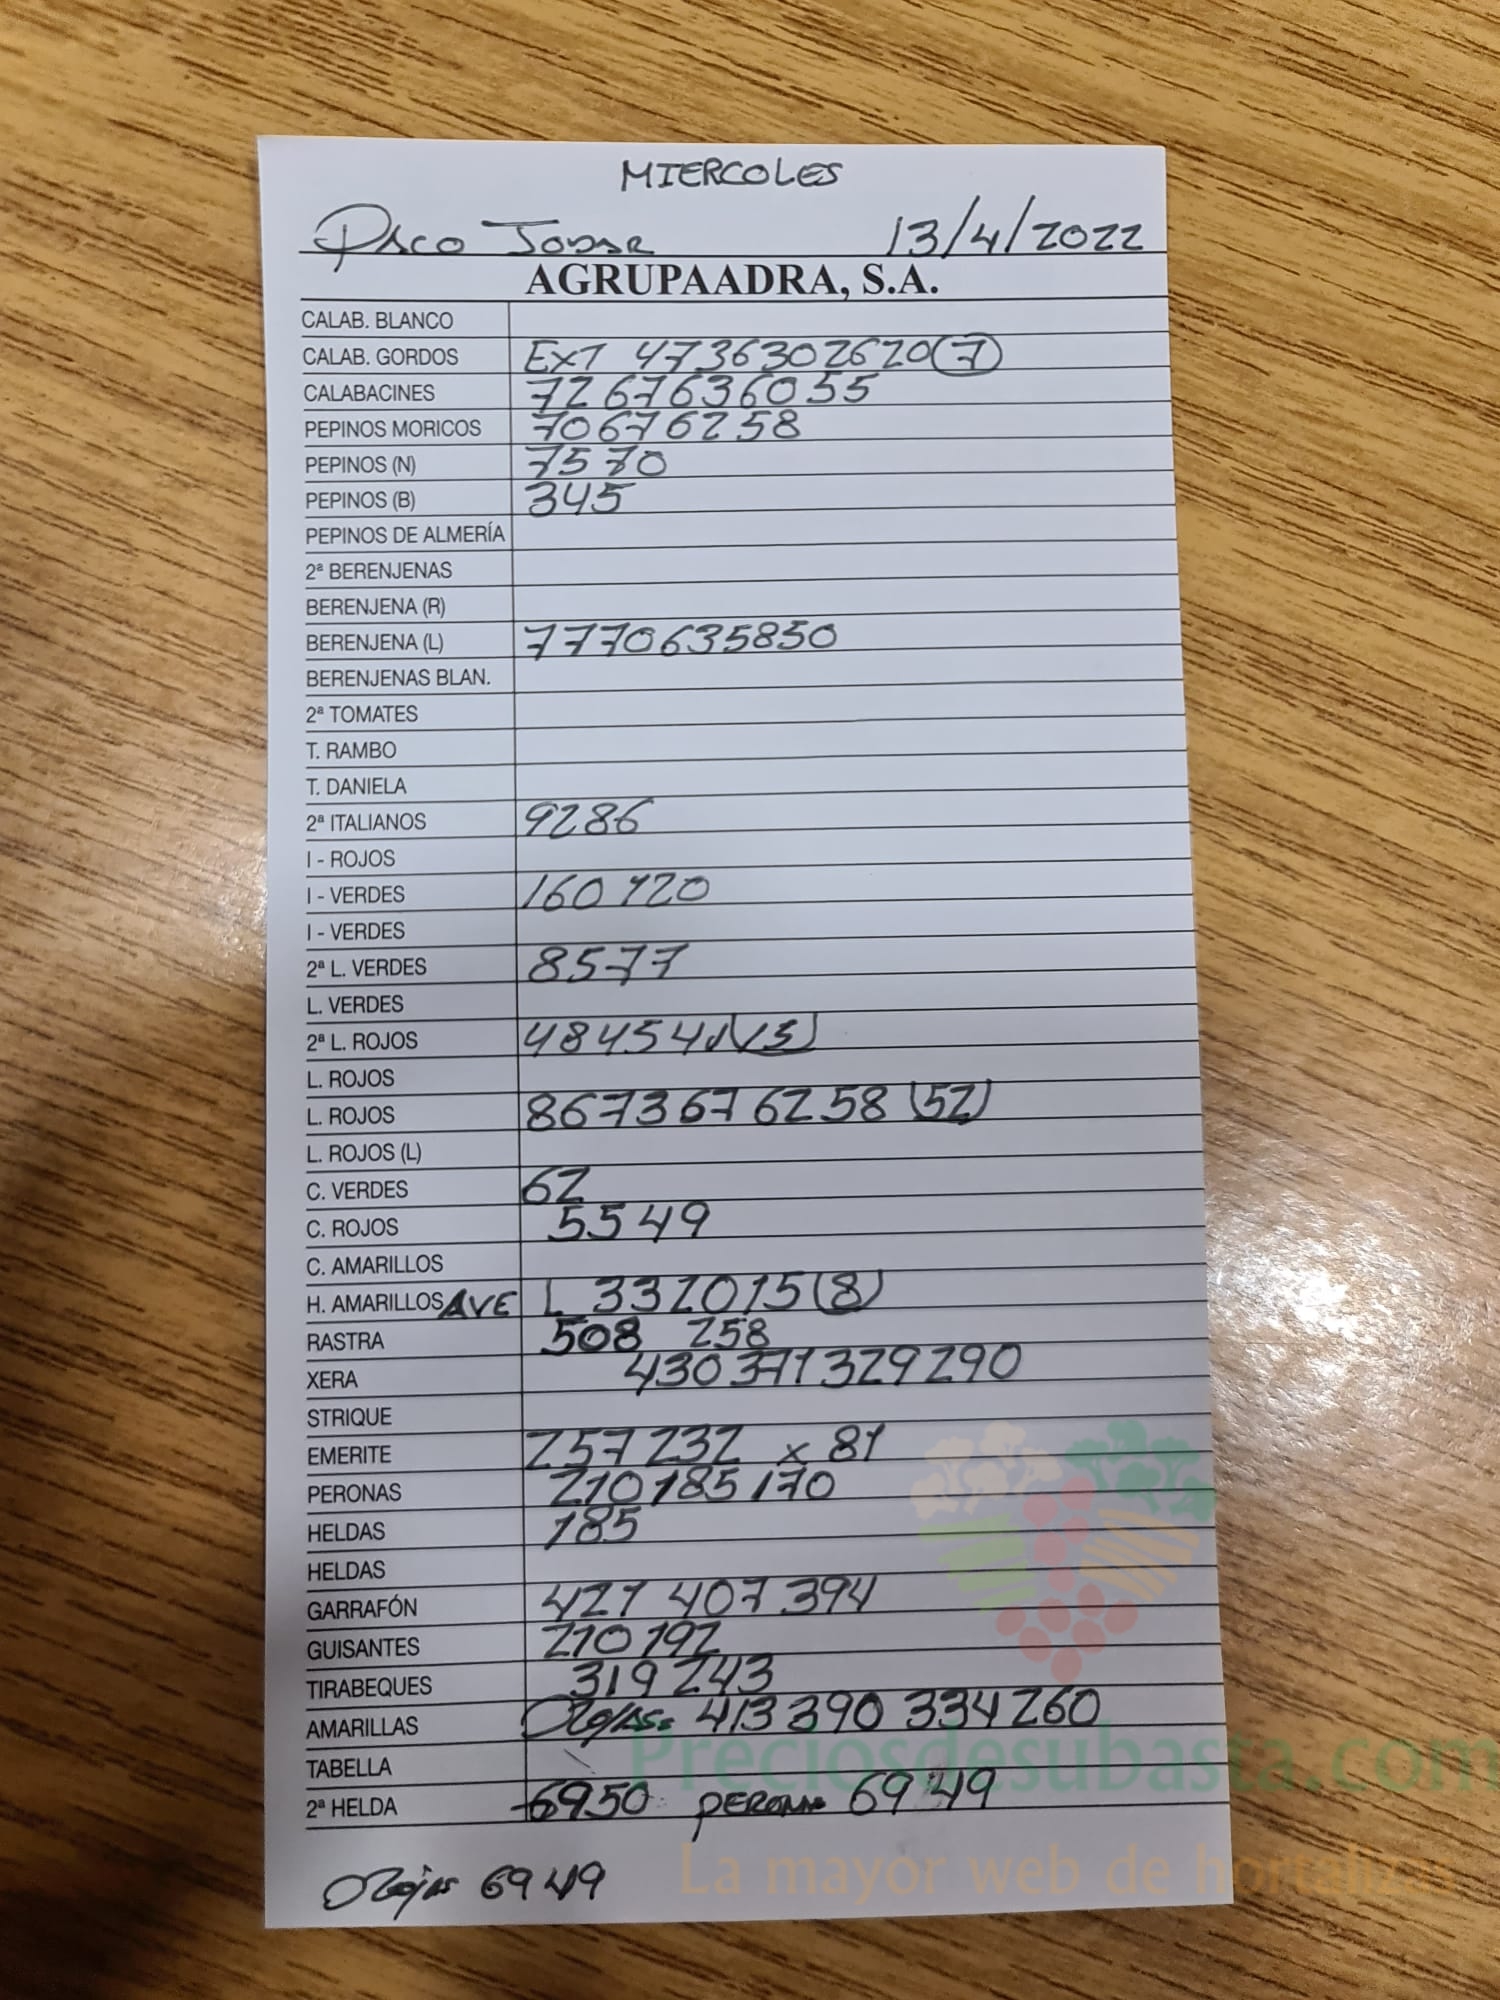 MIERCOLES
PACO 13/4/2022
AGRUPAADRA, S.A.
CALAB. BLANCO
CALAB. GORDOS EXT 4736302620(7)
CALABACINES 7267636055
PEPINOS MORICOS 70676258
PEPINOS (N) 7570
PEPINOS (B) 345
PEPINOS DE ALMERÍA
2ª BERENJENAS
BERENJENA (R)
BERENJENA (L) 7770635850
BERENJENAS BLAN.
2ª TOMATES
T. RAMBO
T. DANIELA
2ª ITALIANOS 9286
I - ROJOS
I - VERDES 160 120
I - VERDES
2ª L. VERDES 8577
L. VERDES
2ª L. ROJOS
L. ROJOS
L. ROJOS 86736762 58 (52)
L. ROJOS (L)
C. VERDES 62
C. ROJOS 5549
C. AMARILLOS
H. AMARILLOS AVE L 332015(8)
RASTRA 508 258
XERA 430 371 329 290
STRIQUE
EMERITE 257 232 x 81
PERONAS 210 185 170
HELDAS 185
HELDAS
GARRAFÓN 421 407 394
GUISANTES 210 192
TIRABEQUES 319 243
AMARILLAS 413 390 334 260
TABELLA
2ª HELDA 6950 PERONA 69 49
Rojas 69 49
Preciosdesubasta.com
La mayor web de hortalizas